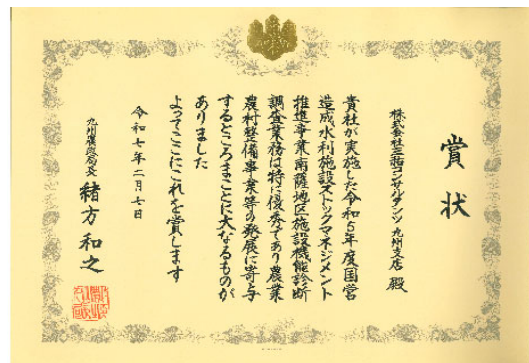 賞状
株式会社三祐コンサルタンツ 九州支店 殿
貴社が実施した令和5年度国営
造成水利施設ストックマネジメント
推進事業南薩地区施設機能診断
調査業務は特に優秀であり農業
農村整備事業等の発展に寄与
するところまことに大なるものが
ありました
よってここにこれを賞します
令和七年二月七日
九州農政局長 緒方和之